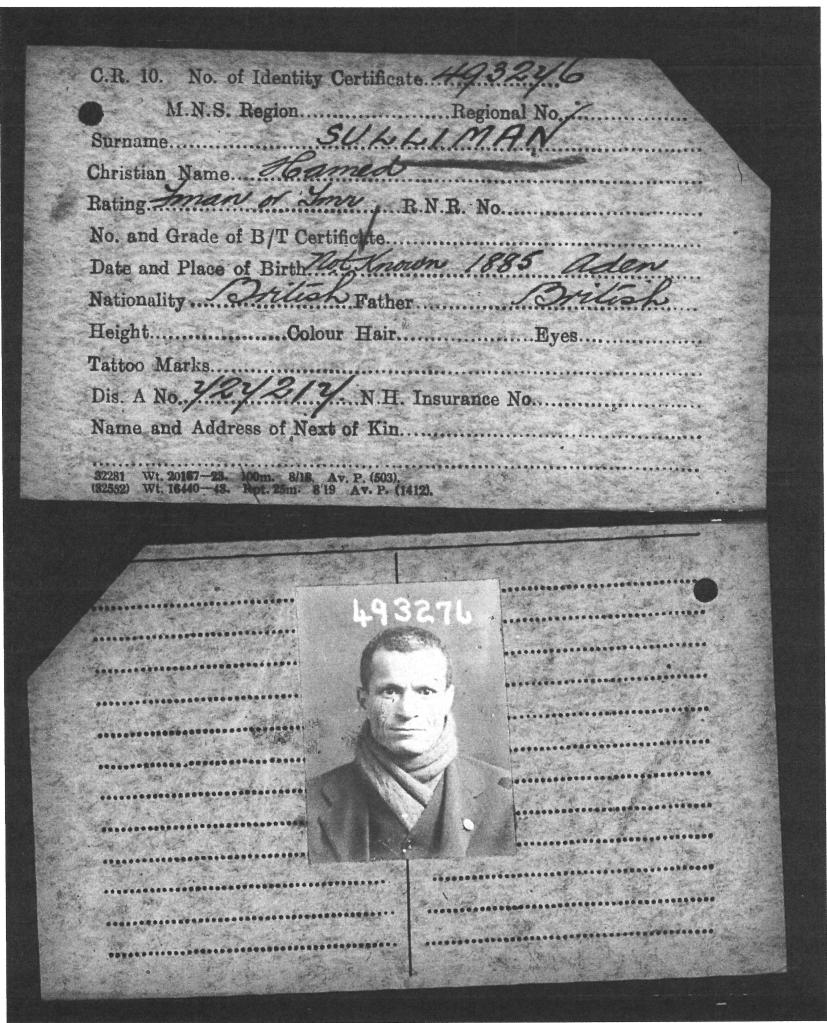 C.R. 10. No. of Identity Certificate...493276
M.N.S. Region..................Regional No./..................
Surname..................SULLIMAN..................
Christian Name....Hamed..................
Rating..Fman or Tmr...R.N.R. No..................
No. and Grade of B/T Certificate..................
Date and Place of Birth Not Known 1885 Aden
Nationality....British Father..........British
Height..................Colour Hair..................Eyes..................
Tattoo Marks..................
Dis. A No. 727217...N.H. Insurance No..................
Name and Address of Next of Kin..................
32281 Wt. 20167—23. 100m. 8/18. Av. P. (503).
(32552) Wt. 16440—43. Rpt. 25m. 8/19 Av. P. (1412).
493276